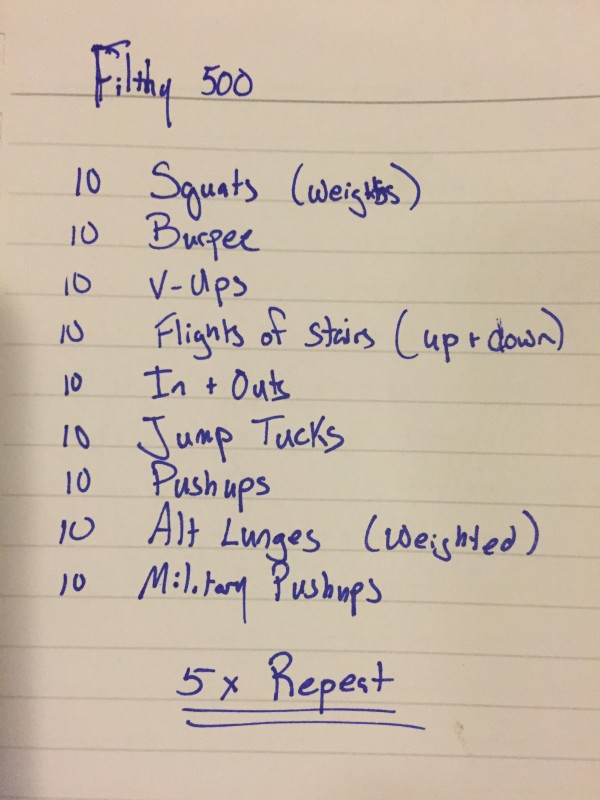 Filthy 500
10 Squats (weights)
10 Burpee
10 V-Ups
10 Flights of stairs (up + down)
10 In + Outs
10 Jump Tucks
10 Pushups
10 Alt Lunges (weighted)
10 Military Pushups
5x Repeat